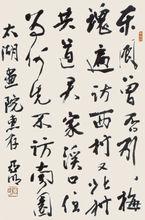 东风曾否引梅
魂遍访西村又北村
共道君家溪口住
为何先不访南园
太湖画院惠存 亚明